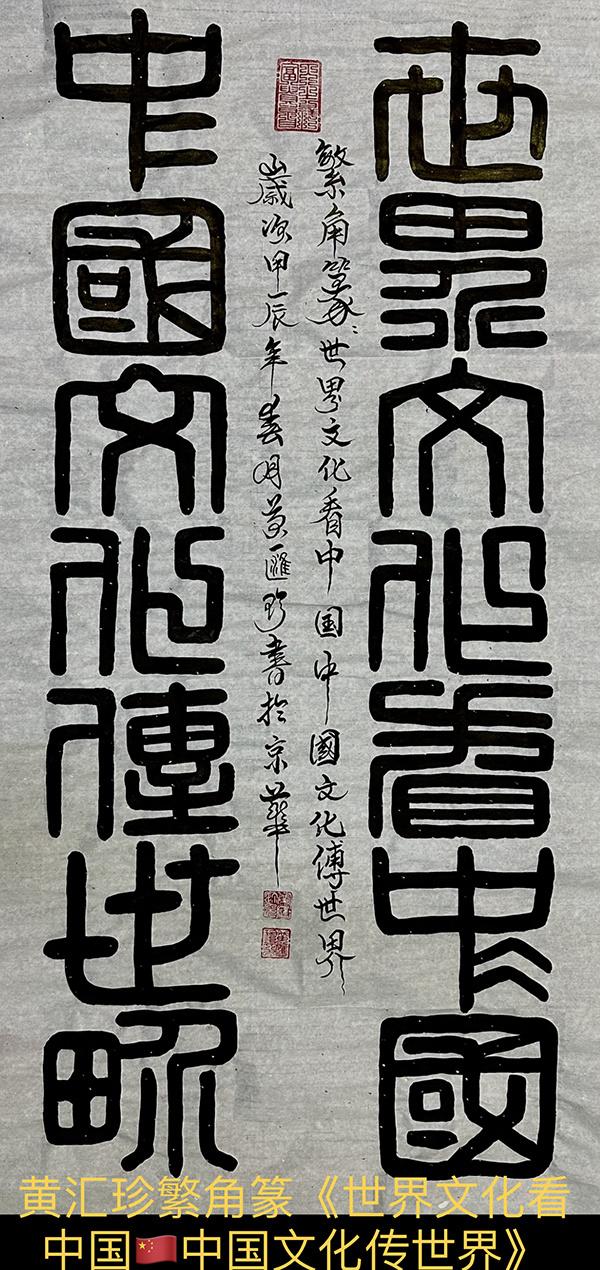 世界文化看中國
繁角篆：世界文化看中国中國文化傳世界
歲次甲辰年春月黄匯珍書於京華
中國文化傳世界
黄汇珍繁角篆《世界文化看
中国🇨🇳中国文化传世界》